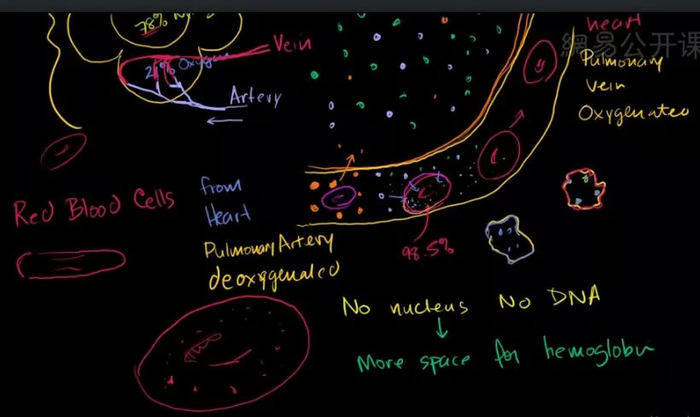 78% N
heart
網易公开课
Vein
Pulmonary
vein
Oxygenated
Oxygen
Artery
Red Blood Cells
from
Heart
Pulmonary Artery
deoxygenated
98.5%
No nucleus No DNA
More space for hemoglobin